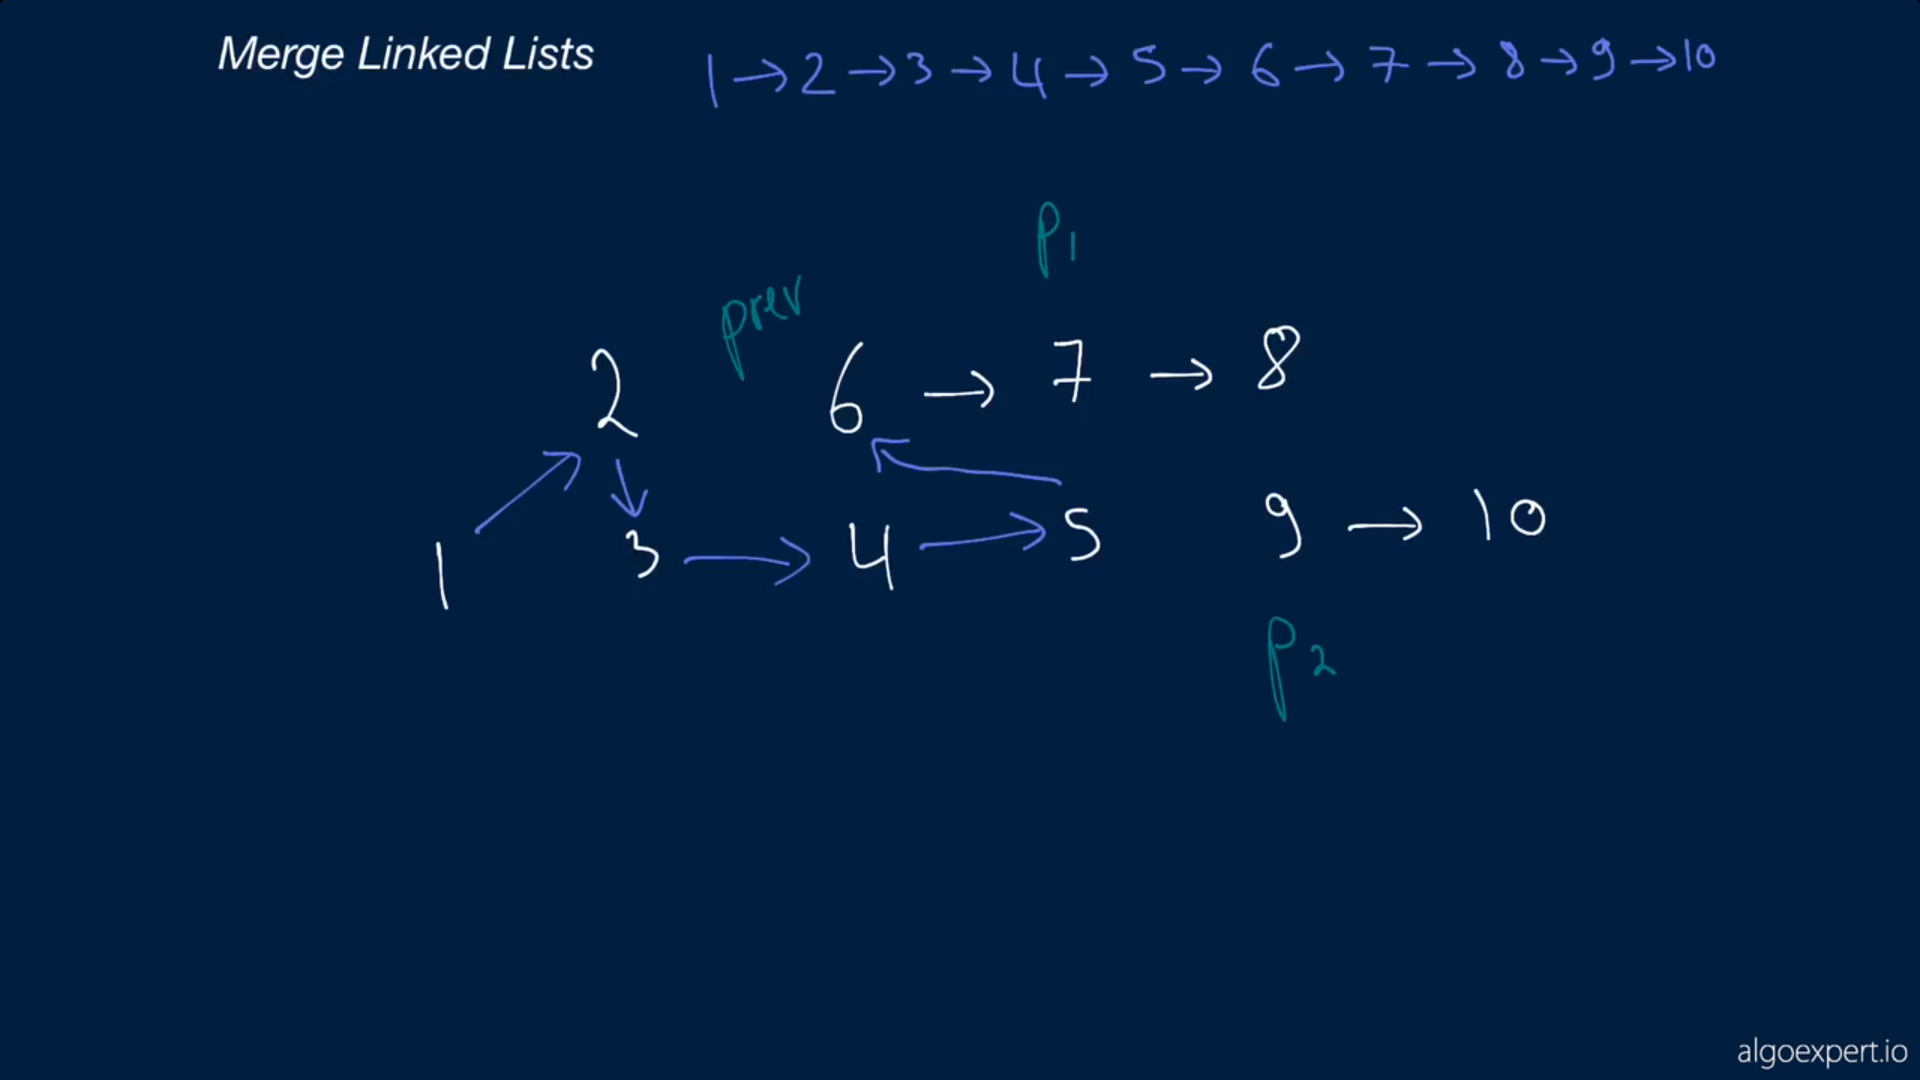 Merge Linked Lists
1 → 2 → 3 → 4 → 5 → 6 → 7 → 8 → 9 → 10
p1
prev
2 6 → 7 → 8
1 3 → 4 → 5 9 → 10
p2
algoexpert.io